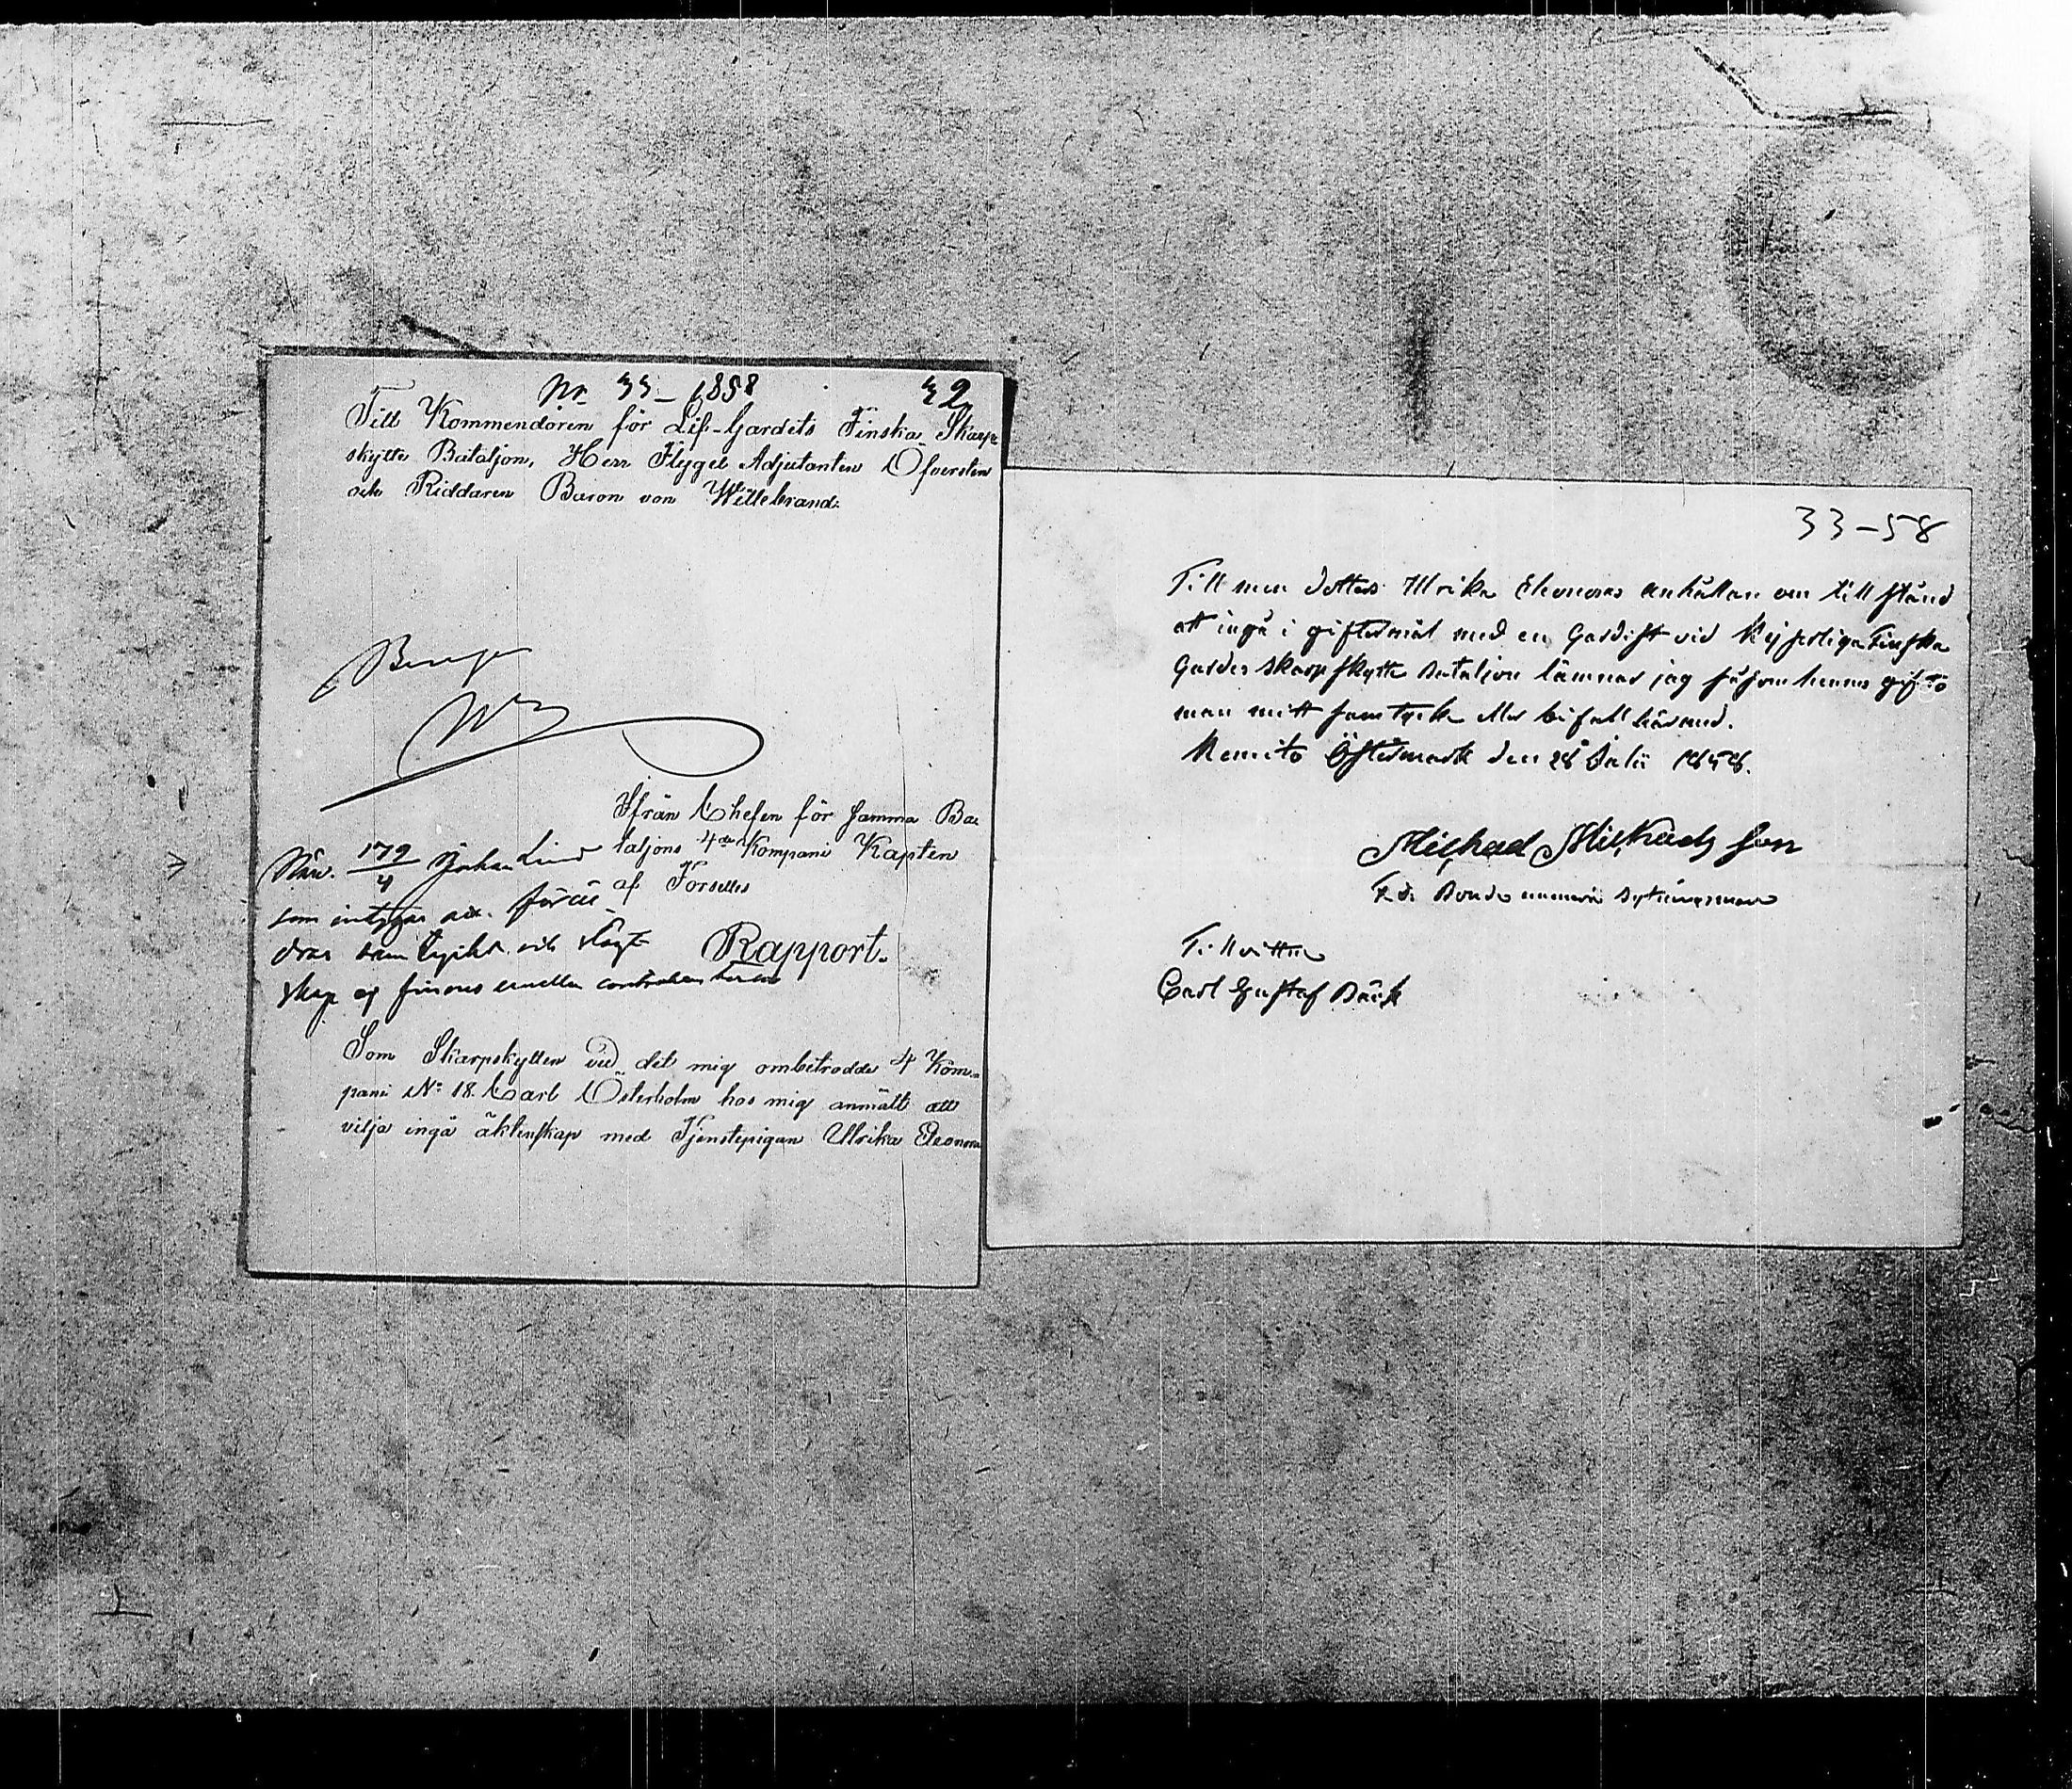 Nr. 33 – 1858
32
Till Kommendören för Lif-Gardets Finska Skarp-
skytte Bataljon, Herr Flygel Adjutanten Öfversten
och Riddaren Baron von Willebrand.
Ifrån Chefen för samma Ba-
taljons 4de Kompani Kapten
af Forselles
Rapport.
Närv. 179/4 Johan Lind
som intygar att föräl-
drar samtyckt och slägt-
skap ej finnes emellan contrahenterne
Som Skarpskytten vid det mig ombetrodde 4 Kom-
pani No 18. Carl Österholm hos mig anmält att
vilja ingå äktenskap med Tjenstepigan Ulrika Eleonora
33–58
Till min dotters Ulrika Eleonoras anhållan om tillstånd
att ingå i giftermål med en Gardist vid Kejserliga Finska
Gardes Skarpskytte Bataljon lämnar jag såsom hennes gifto
man mitt samtycke eller bifall härmed.
Kemito Östermark den 28 Julii 1858.
Michael Michaels son
F. d. Bonde
Till vittne
Carl Gustaf Bäck